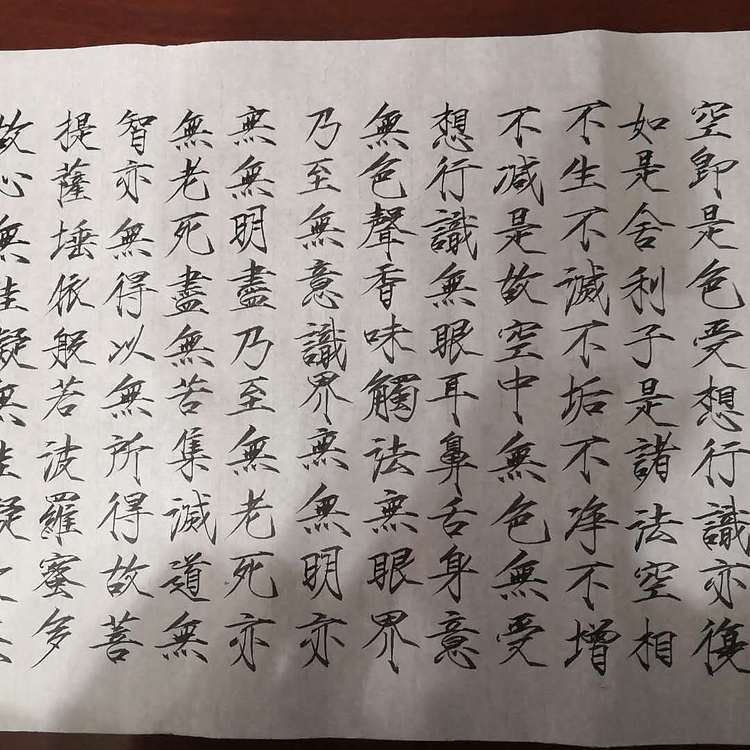 空即是色受想行識亦復
如是舍利子是諸法空相
不生不滅不垢不净不增
不減是故空中無色無受
想行識無眼耳鼻舌身意
無色聲香味觸法無眼界
乃至無意識界無無明亦
無無明盡乃至無老死亦
無老死盡無苦集滅道無
智亦無得以無所得故菩
提薩埵依般若波羅蜜多
故心無罣礙無罣礙故無